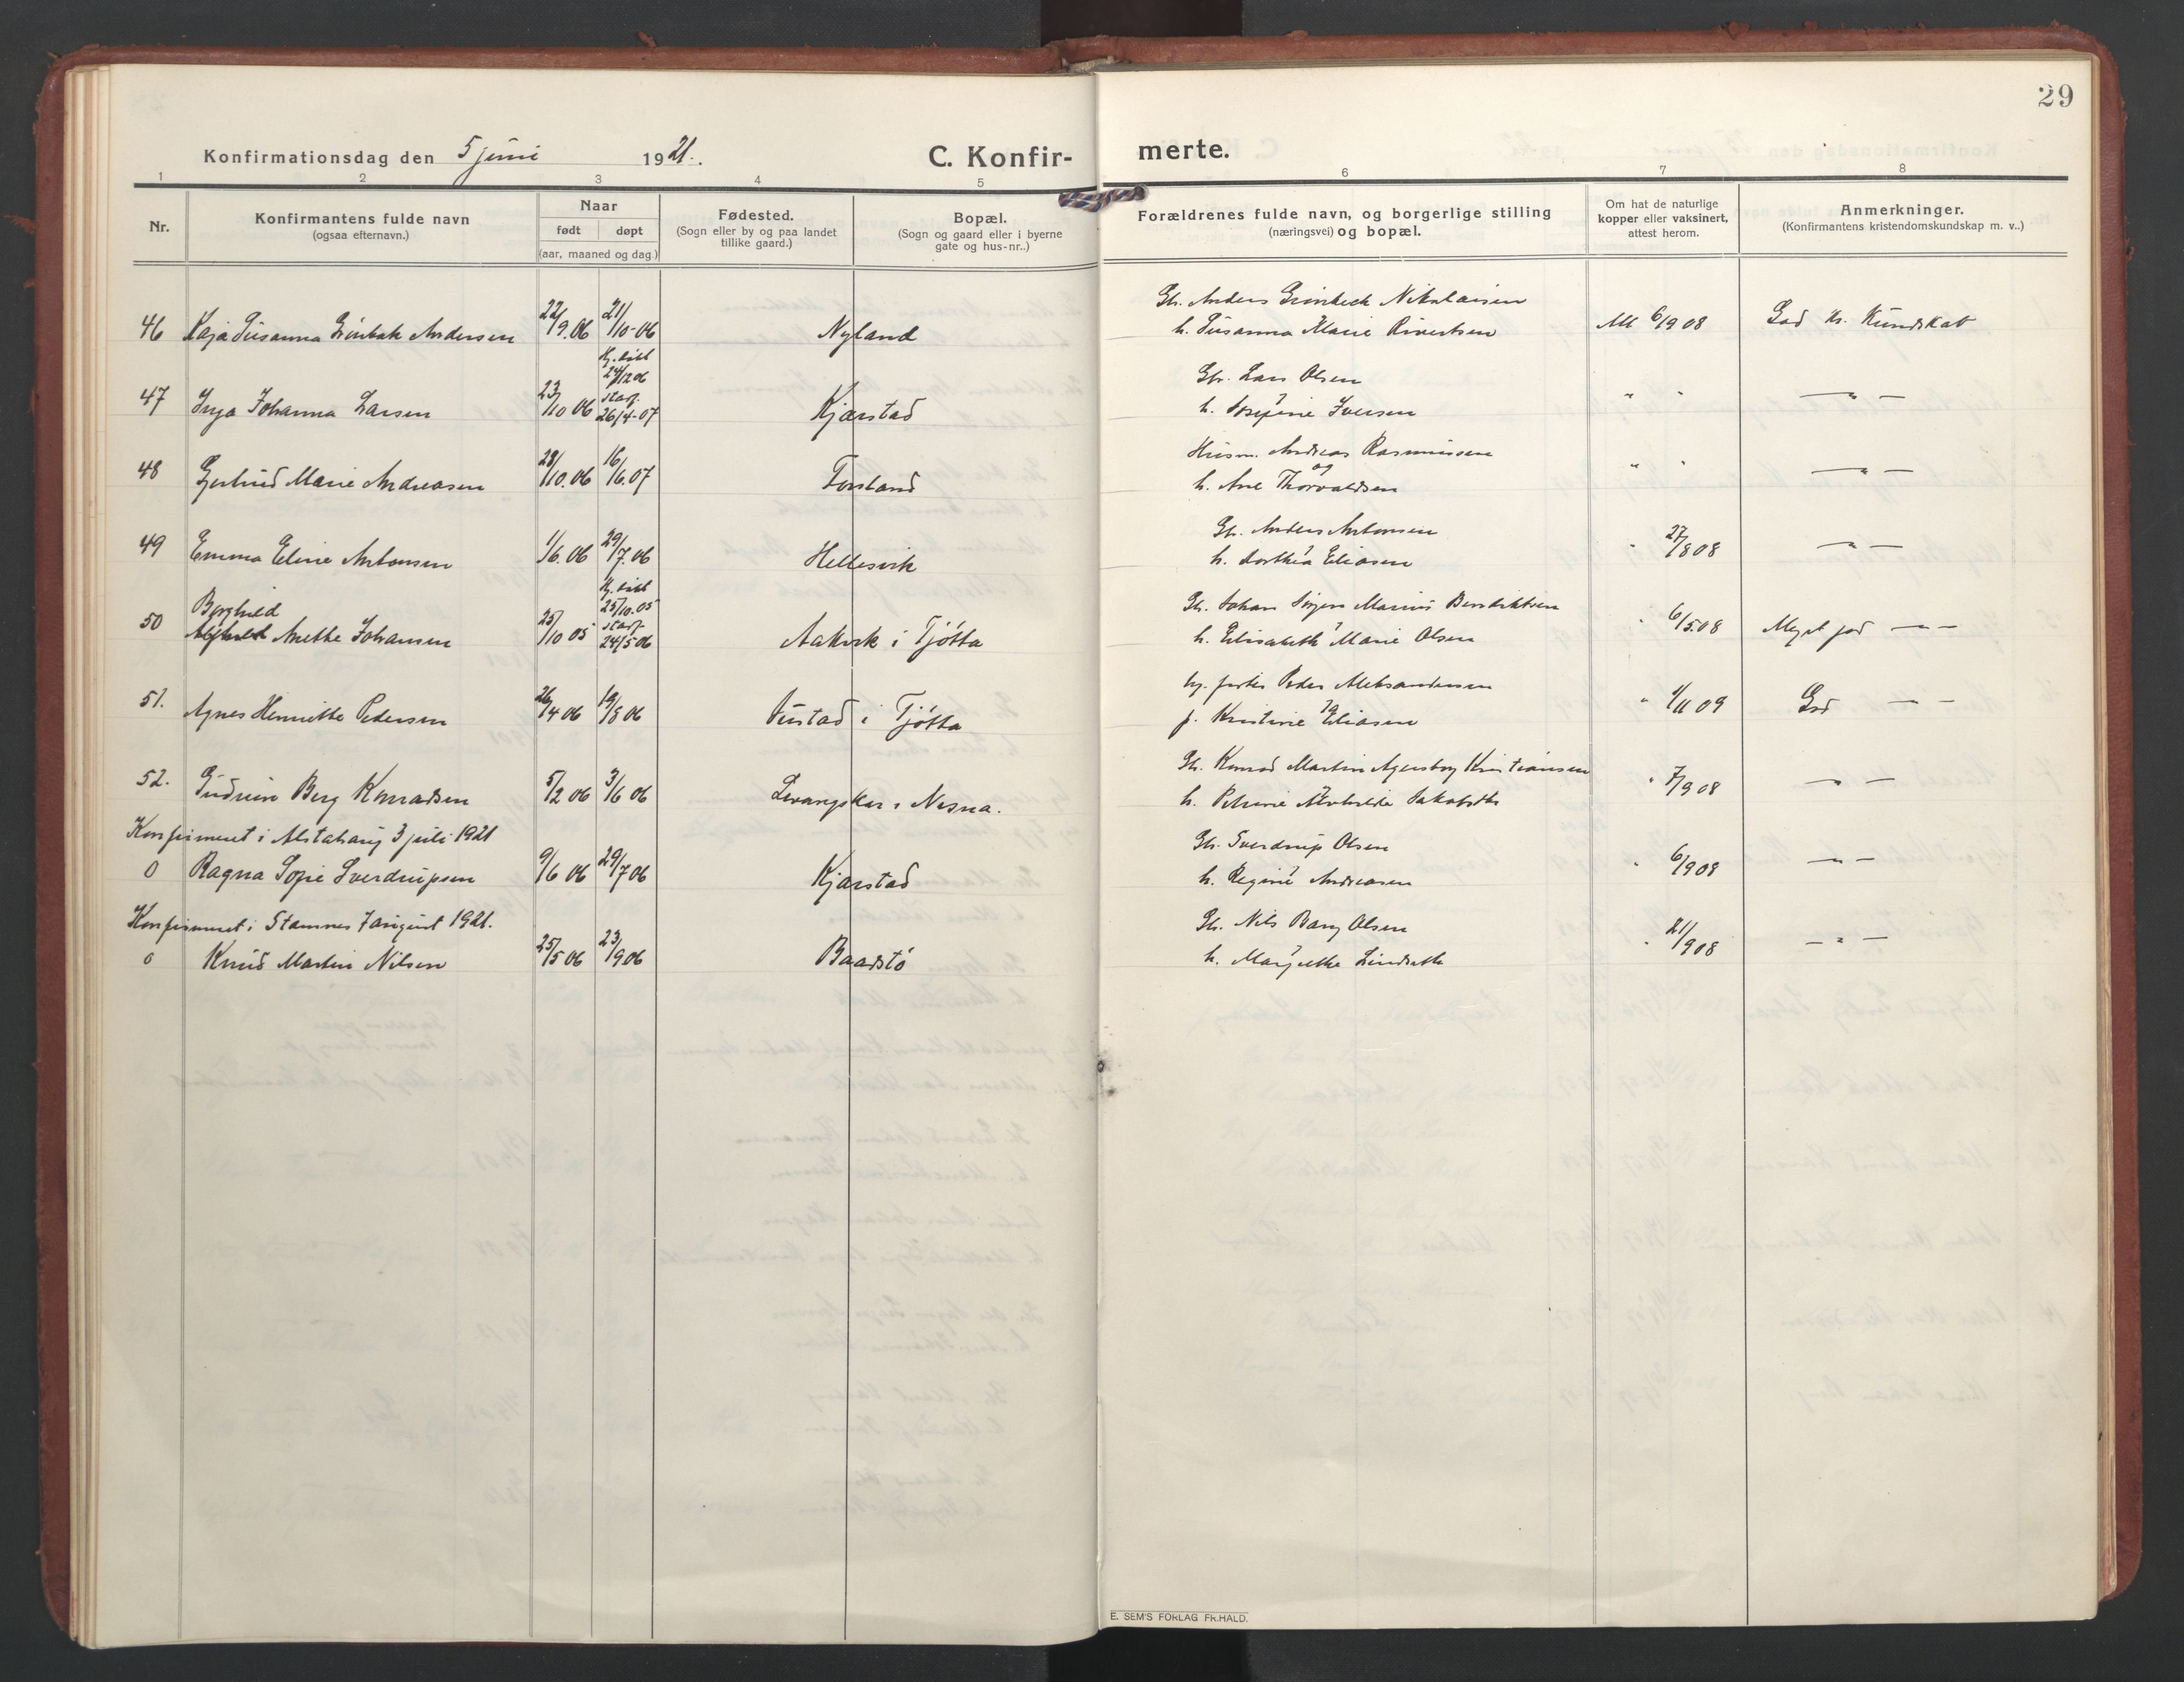 29
Konfirmationsdag den 5 juni 1921.
C. Konfir-
merte.
1 2 3 4 5 6 7 8
Nr.
Konfirmantens fulde navn
(ogsaa efternavn.)
Naar
født døpt
(aar, maaned og dag.)
Fødested.
(Sogn eller by og paa landet
tillike gaard.)
Bopæl.
(Sogn og gaard eller i byerne
gate og hus-nr..)
Forældrenes fulde navn, og borgerlige stilling
(næringsvei) og bopæl.
Om hat de naturlige
kopper eller vaksinert,
attest herom.
Anmerkninger.
(Konfirmantens kristendomskundskap m. v..)
Gbr. Anders Grönbeck Nikolaisen
46 Kaja Susanna Grönbæk Andersen 22/9.06 21/10-06 Nyland h. Susanna Marie Sivertsen Att 6/9 08 God kr. Kundskab
Hj.døbt
24/12 06
Gbr. Lars Olsen
47 Inga Johanna Larsen 23/10 06 stadf. 26/4-07 Kjærstad h. Josefine Iversen " " — " —
Husm. Andreas Rasmussen
og
48 Gjertrud Marie Andreasen 28/10.06 16/6.07 Forsland h. Ane Thorvaldsen " " — " —
Gbr. Anders Antonsen
49 Emma Eline Antonsen 1/6.06 29/7.06 Hellesvik h. Dorthea Eliasen " 27/8 08 — " —
Hj.døbt
25/10.05
Borghild
Gbr. Johan Jörgen Marius Bendiktsen
50 Anethe Johansen 25/10 05 stadf. 24/5 06 Aakvik i Tjötta h. Elisabeth Marie Olsen " 6/5.08 Meget god — —
Peder Aleksandersen
og
51. Agnes Henriette Pedersen 26/4 06 19/8 06 i Tjötta Kristine Eliasen " 1/11 09 God — —
Gbr. Konrad Martin Agersborg Kristiansen
52. Gudrun Berg Konradsen 5/2 06 3/6 06 i Nesna. h. Petrine " 7/9 08 — " —
Konfirmeret i Alstahaug 3 juli 1921
Gbr. Sverdrup Olsen
0 Ragna Sofie Sverdrupsen 9/6 06 29/7 06 Kjærstad h. Regine Andreasen " 6/9 08 — " —
Konfirmeret i Stamnes 7 august 1921.
Gbr. Nils Bang Olsen
0 Knud Martin Nilsen 25/5 06 23/9 06 Baardstö h. Margrethe Lindseth " 21/9 08 — " —
E. SEM'S FORLAG FR.HALD.